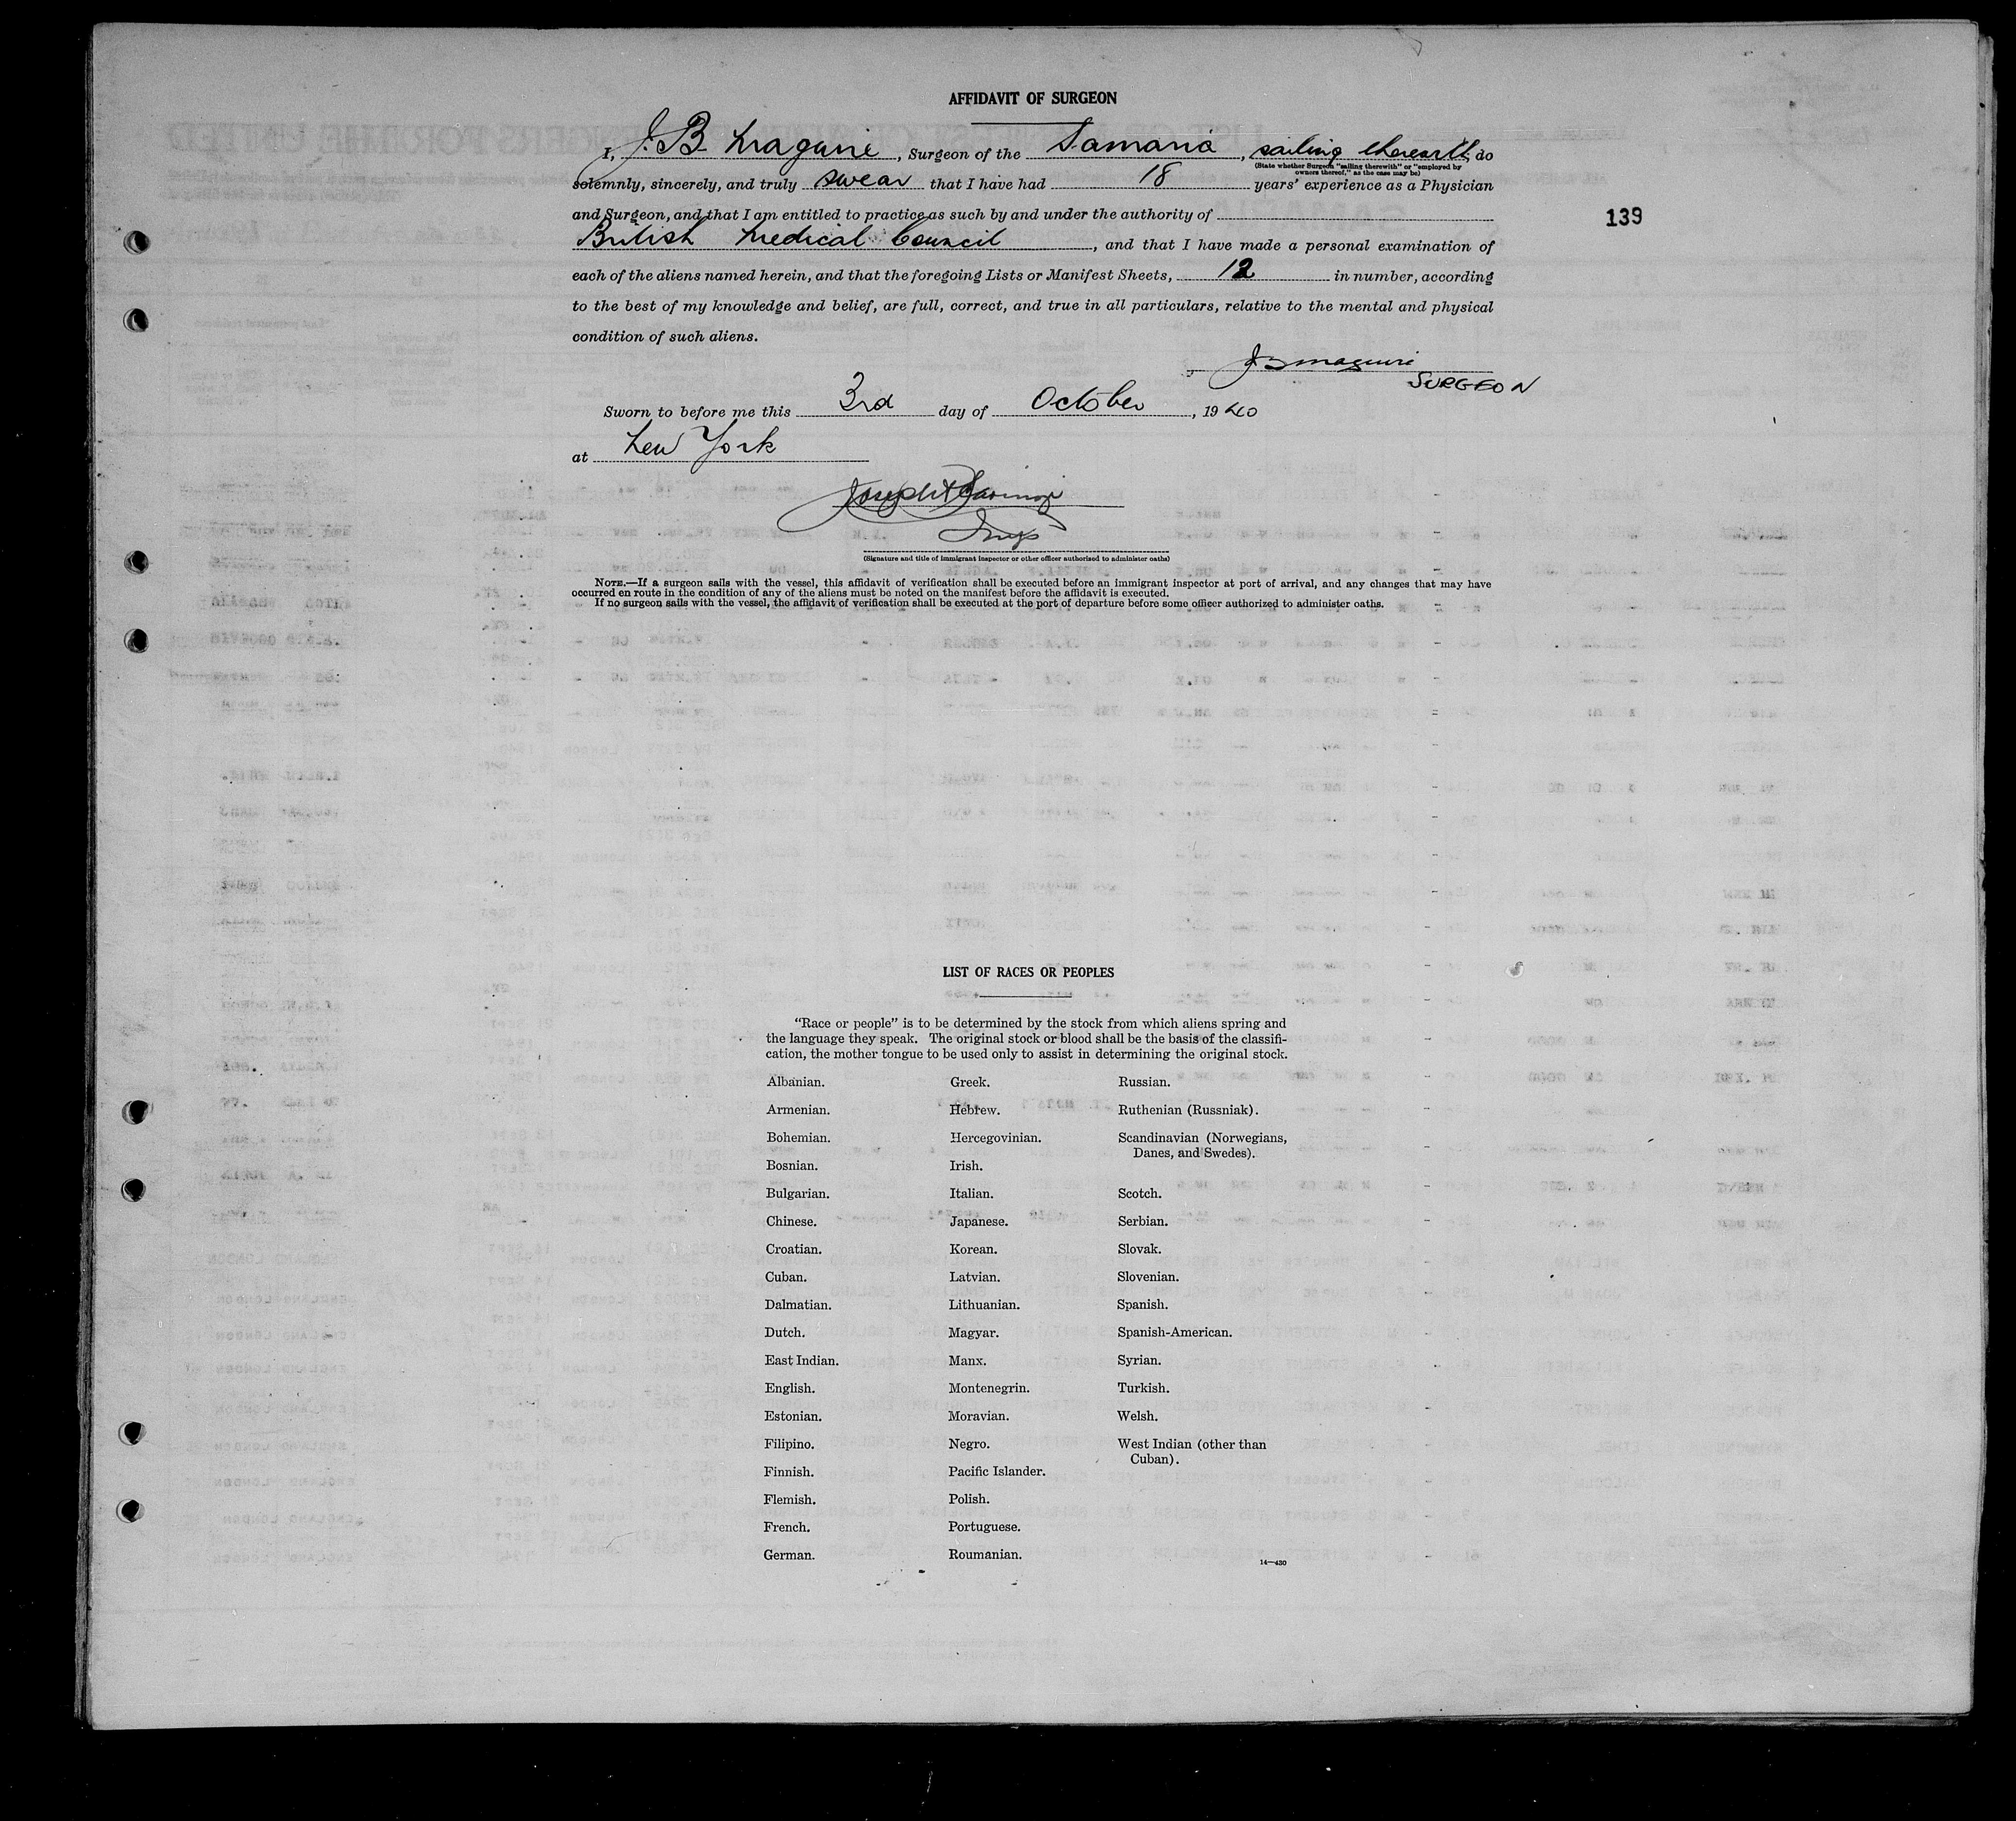 AFFIDAVIT OF SURGEON
I, J. B. Maguire, Surgeon of the Samaria, sailing therewith, do
(State whether Surgeon "sailing therewith" or "employed by
owners thereof," as the case may be)
solemnly, sincerely, and truly swear that I have had 18 years' experience as a Physician
and Surgeon, and that I am entitled to practice as such by and under the authority of
139
British Medical Council, and that I have made a personal examination of
each of the aliens named herein, and that the foregoing Lists or Manifest Sheets, 12 in number, according
to the best of my knowledge and belief, are full, correct, and true in all particulars, relative to the mental and physical
condition of such aliens.
J B Maguire
SURGEON
Sworn to before me this 3rd day of October, 1940
at New York
Insp
(Signature and title of immigrant inspector or other officer authorized to administer oaths)
NOTE.—If a surgeon sails with the vessel, this affidavit of verification shall be executed before an immigrant inspector at port of arrival, and any changes that may have
occurred en route in the condition of any of the aliens must be noted on the manifest before the affidavit is executed.
If no surgeon sails with the vessel, the affidavit of verification shall be executed at the port of departure before some officer authorized to administer oaths.
LIST OF RACES OR PEOPLES
"Race or people" is to be determined by the stock from which aliens spring and
the language they speak. The original stock or blood shall be the basis of the classifi-
cation, the mother tongue to be used only to assist in determining the original stock.
Albanian.
Armenian.
Bohemian.
Bosnian.
Bulgarian.
Chinese.
Croatian.
Cuban.
Dalmatian.
Dutch.
East Indian.
English.
Estonian.
Filipino.
Finnish.
Flemish.
French.
German.
Greek.
Hebrew.
Hercegovinian.
Irish.
Italian.
Japanese.
Korean.
Latvian.
Lithuanian.
Magyar.
Manx.
Montenegrin.
Moravian.
Negro.
Pacific Islander.
Polish.
Portuguese.
Roumanian.
Russian.
Ruthenian (Russniak).
Scandinavian (Norwegians,
Danes, and Swedes).
Scotch.
Serbian.
Slovak.
Slovenian.
Spanish.
Spanish-American.
Syrian.
Turkish.
Welsh.
West Indian (other than
Cuban).
14—430